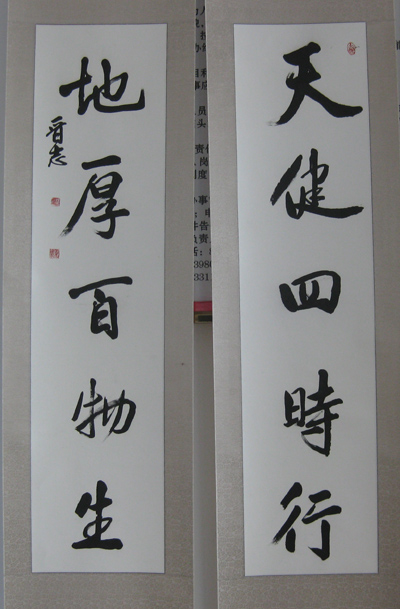 天健四時行
地厚百物生
晋志